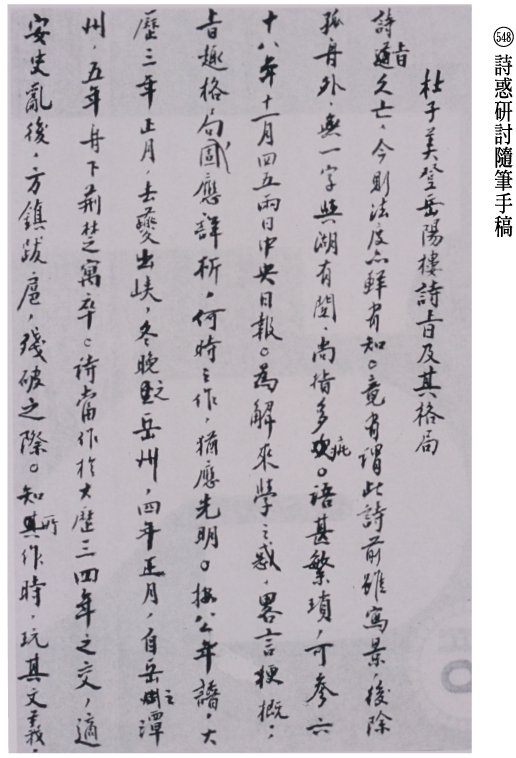 548 詩惑研討隨筆手稿
杜子美登岳陽樓詩旨及其格局
詩旨久亡，今則法度亦鮮有知。竟有謂此詩前雖寫景，後除
孤舟外，無一字與湖有關，尚指多疵。語甚繁瑣，可參六
十八年十一月四五兩日中央日報。為解來學之惑，畧言梗概，
旨趣格局固應詳析，何時之作，猶應先明。按公年譜，大
歷三年正月，去夔出峽，冬晚之岳州，四年正月，自岳之潭
州，五年舟下荊楚寓卒。詩當作於大歷三四年之交，適
安史亂後，方鎮跋扈，殘破之際。知所作時，玩其文義，